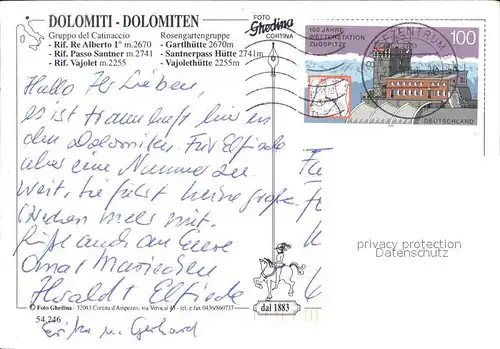 DOLOMITI - DOLOMITEN
Gruppo del Catinaccio
- Rif. Re Alberto 1° m.2670
- Rif. Passo Santner m.2741
- Rif. Vajolet m.2255
Rosengartengruppe
- Gartlhütte 2670m
- Santnerpass Hütte 2741m
- Vajolethütte 2255m
FOTO
Ghedina
CORTINA
100 JAHRE
WETTERSTATION
ZUGSPITZE
100
DEUTSCHLAND
BRIEFZENTRUM
Hallo Ihr Lieben,
es ist traumhaft hier in
den Dolomiten. Für Elfriede
aber eine Nummer zu
weit, sie fährt keine große
mehr mit.
Grüße auch an Eure
Oma
Elfriede
Erika u. Gerhard
© Foto Ghedina - 32043 Cortina d'Ampezzo, via Verocai 45 - tel. e fax 0436/860737
54.246
dal 1883
privacy protection
Datenschutz